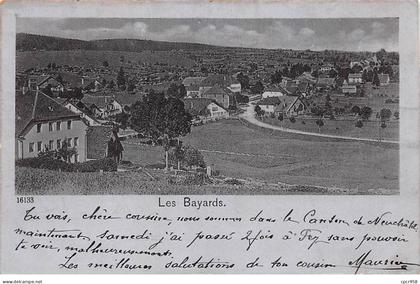 Les Bayards.
16133
Tu vois, chère cousine, nous sommes dans le Canton de Neuchâtel
maintenant, Samedi j'ai passé 2 fois à Fr sans pouvoir
te voir, malheureusement.
Les meilleures salutations de ton cousin Maurice
cpa-carte-postale.com958